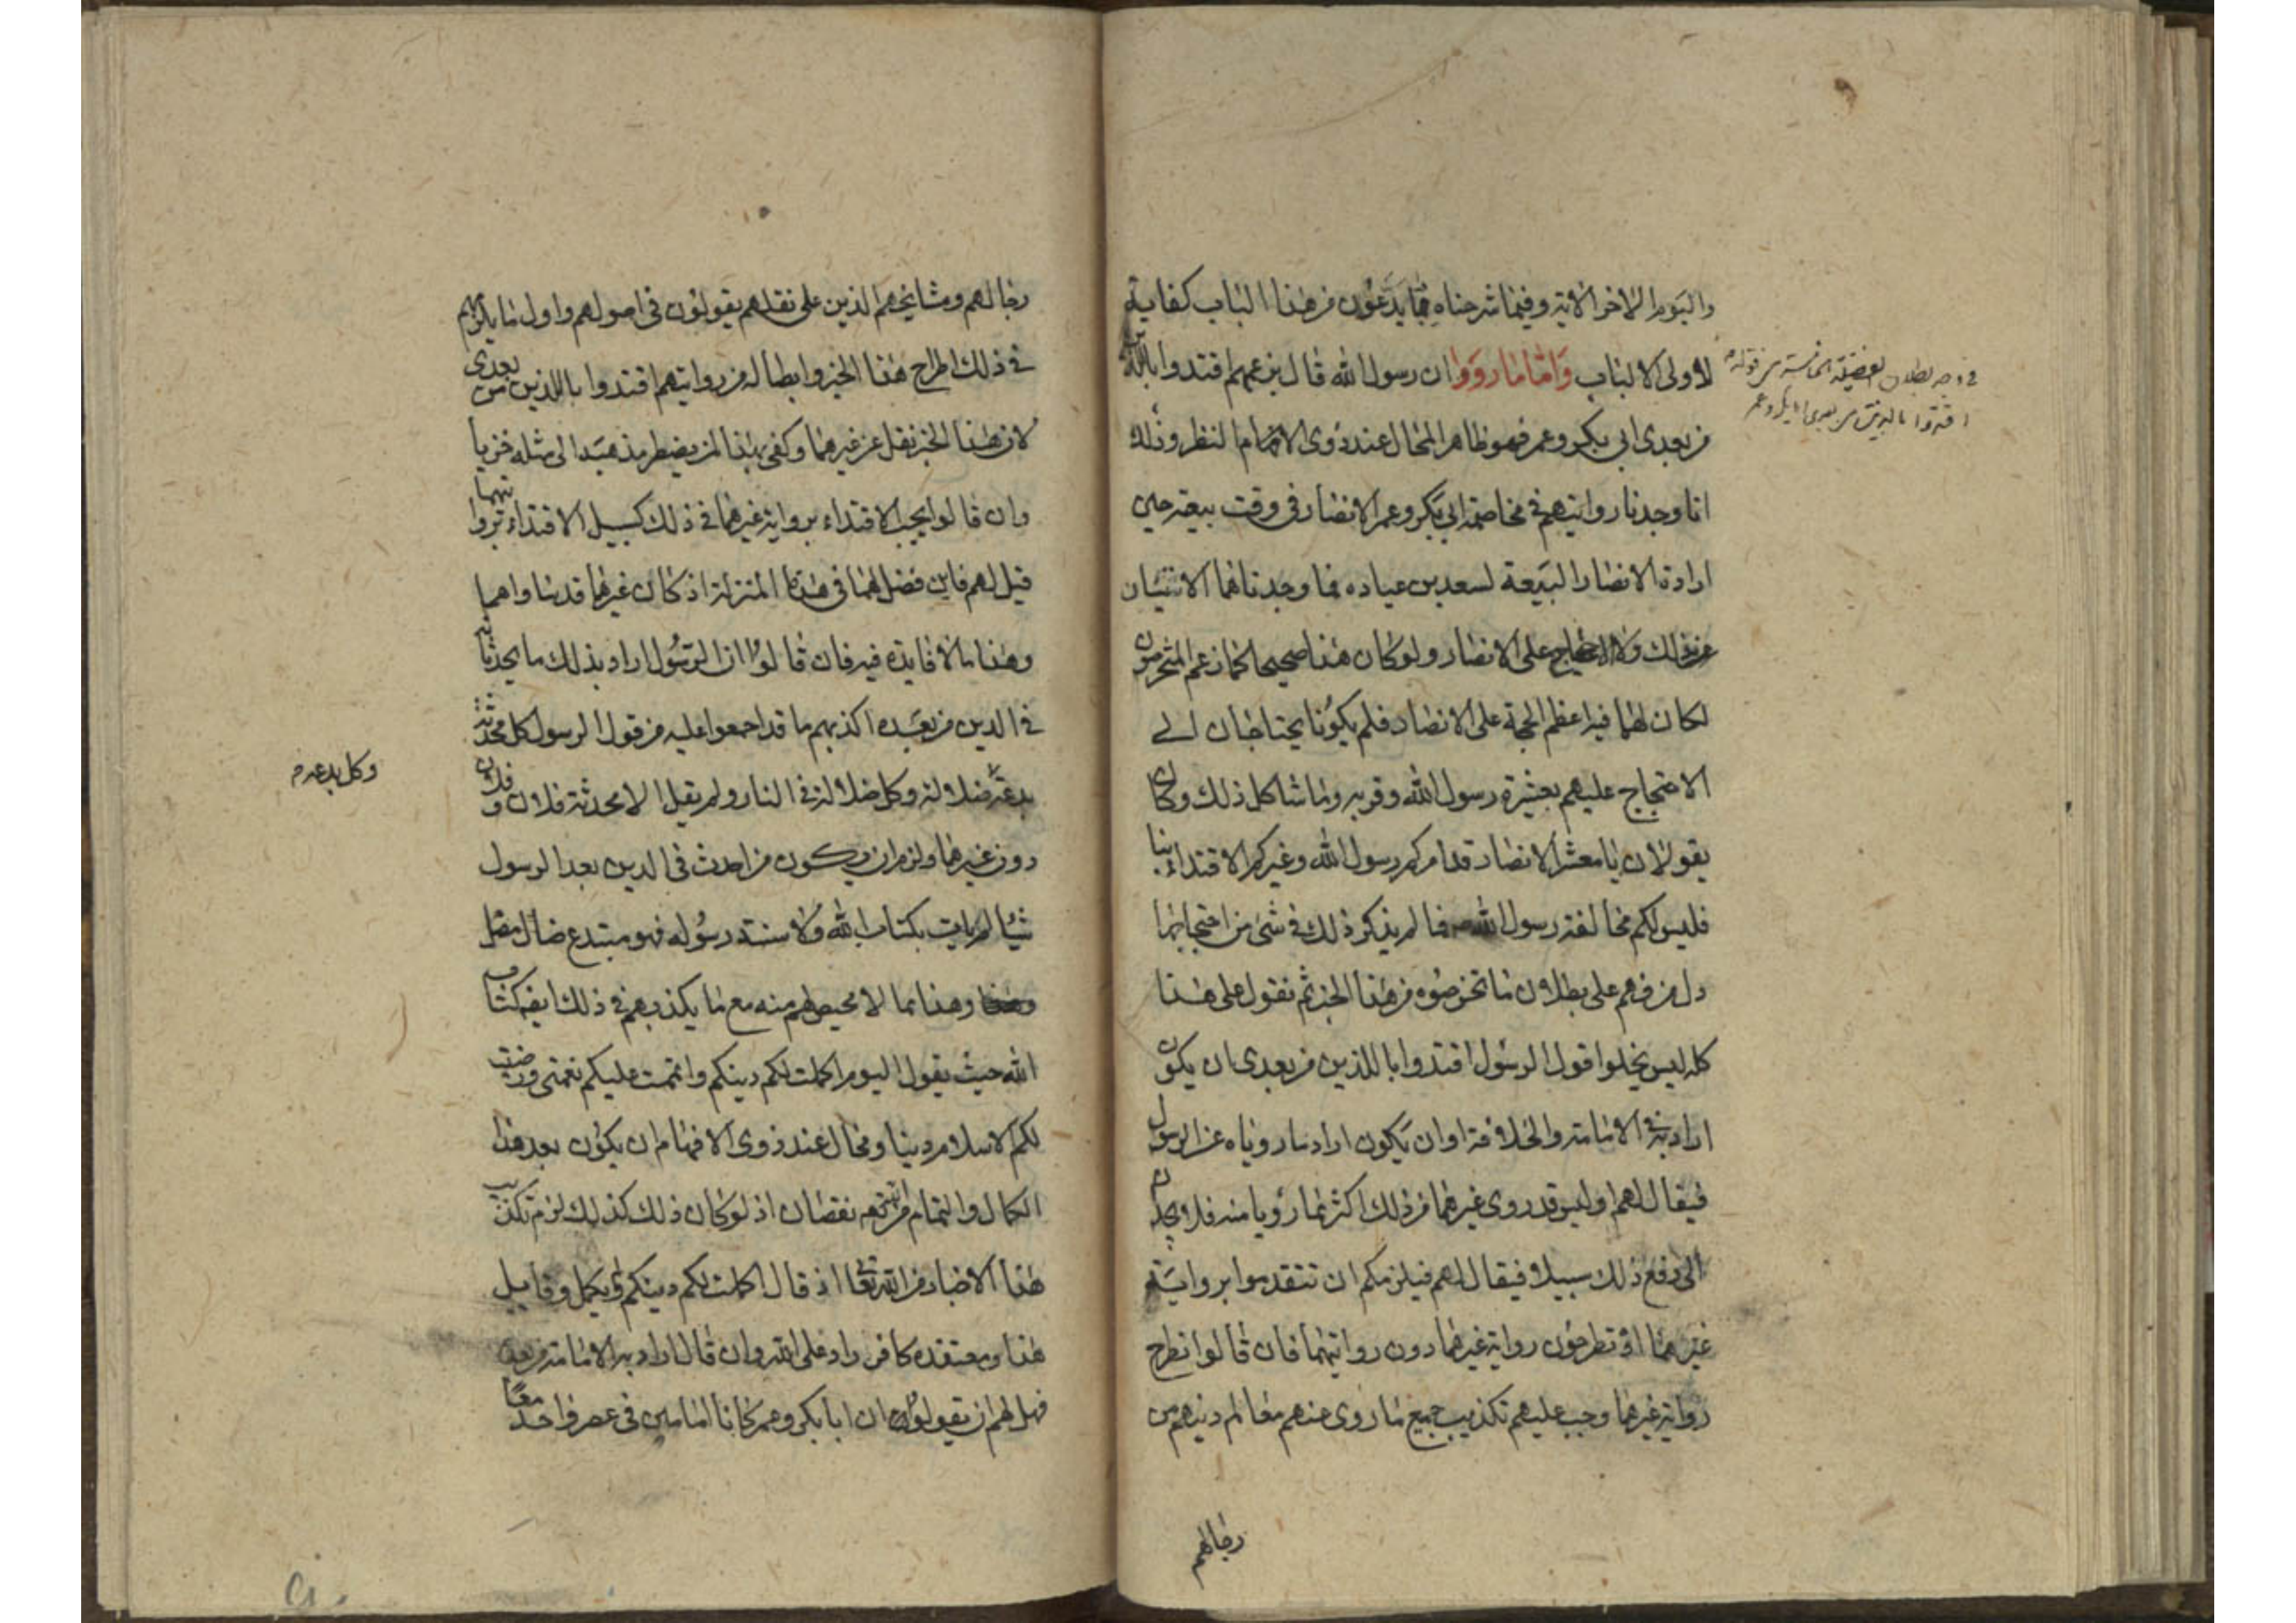 واليوم الاخر الاية وفيما شرحناه مما يدعون من هذا الباب كفاية
لاولى الالباب واما ما رووا ان رسول الله قال بزعمهم اقتدوا باللذين
من بعدى ابى بكر وعمر فهو ظاهر المحال عند ذوى الافهام والنظر وذلك
انا وجدنا روايتهم فى مخاصمة ابى بكر وعمر الانصار فى وقت بيعته حين
ارادة الانصار البيعة لسعد بن عباده فما وجدناهما الاثنان
ذلك ولا احتجاج على الانصار ولو كان هذا صحيحا كما زعم المتخرصون
لكان لهما فيه اعظم الحجة على الانصار فلم يكونا يحتاجان الى
الاحتجاج عليهم بعشيرة رسول الله وقربه وما شاكل ذلك وكان
يقولان يا معشر الانصار قد امركم رسول الله وغيركم الاقتداء بنا
فليس لكم مخالفة رسول الله فما لم يذكر ذلك فى شئ من احتجاجهما
دل من فهم على بطلان ما تخرصوه من هذا الخبر ثم نقول على هذا
كله ليس يخلوا قول الرسول اقتدوا باللذين من بعدى ان يكون
اراد به فى الامامة والخلافة او ان يكون اراد ما روياه عن الرسول
فيقال لهم اوليس قد روى غيرهما من ذلك اكثر مما رويا منه فلا يجدون
الى دفع ذلك سبيلا فيقال لهم فيلزمكم ان تتقدموا برواية
غيرهما او تطرحون رواية غيرهما دون روايتهما فان قالوا نطرح
رواية غيرهما وجب عليهم تكذيب جميع ما روى عندهم معالم دينهم من
رجالهم
فى وجه بطلان الفضيلة الخامسة من قوله
اقتدوا بالذين من بعدى ابى بكر وعمر
رجالهم ومشايخهم الذين على نقلهم يقولون فى اصولهم واول ما يلزمهم
فى ذلك اطراح هذا الخبر وابطاله من روايتهم اقتدوا باللذين من بعدى
لان هذا الخبر نقل عن غيرهما وكفى بهذا لمن يضطر مذهبه الى مثله خزيا
وان قالوا يجب الاقتداء برواية غيرهما فى ذلك كسبيل الاقتداء بروايتهما
قيل لهم فاين فضل لهما فى هذه المنزلة اذ كان غيرهما قد ساواهما
وهذا ما لا فايدة فيه فان قالوا ان الرسول اراد بذلك ما يحدثانه
فى الدين من بعده اكذبهم ما قد اجمعوا عليه من قول الرسول كل محدثة
بدعة ضلالة وكل ضلالة فى النار ولم يقل الا محدثة فلان و فلان
دون غيرهما ولزم ان يكون من احدث فى الدين بعد الرسول
شيئا لم يات بكتاب الله ولا سنة رسوله فهو مبتدع ضال مضل
وهذا مما لا محيص لهم منه مع ما يكذبهم فى ذلك ايضا كتاب
الله حيث يقول اليوم اكملت لكم دينكم واتممت عليكم نعمتى ورضيت
لكم الاسلام دينا ومحال عند ذوى الافهام ان يكون بعد هذا
الكمال والتمام نقصان اذ لو كان ذلك كذلك لزم تكذيب
هذا الاخبار من الله تعالى اذ قال اكملت لكم دينكم ولم يكمل وقايل
هذا ومعتقده كافر راد على الله وان قال اراد به الامامة من بعدى
فهل لهم ان يقولوا ان ابا بكر وعمر كانا امامين فى عصر واحد معا
وكل بدعة